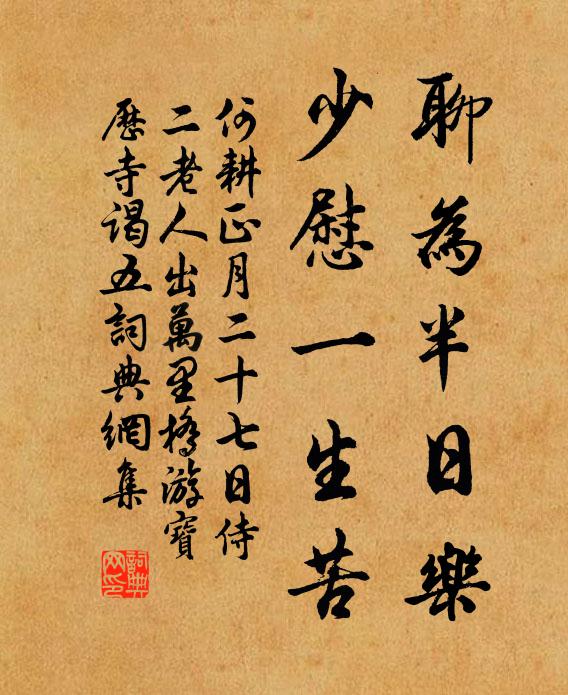 聊為半日樂
少慰一生苦
何耕正月二十七日侍
二老人出萬里橋游寶
歷寺謁五詞典網集
詞典
网印